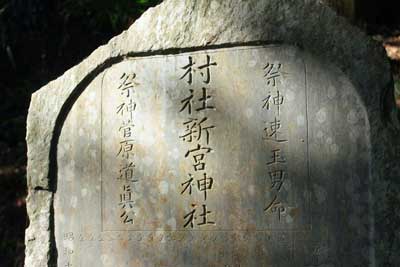 祭神速玉男命
村社新宮神社
祭神菅原道真公
昭和